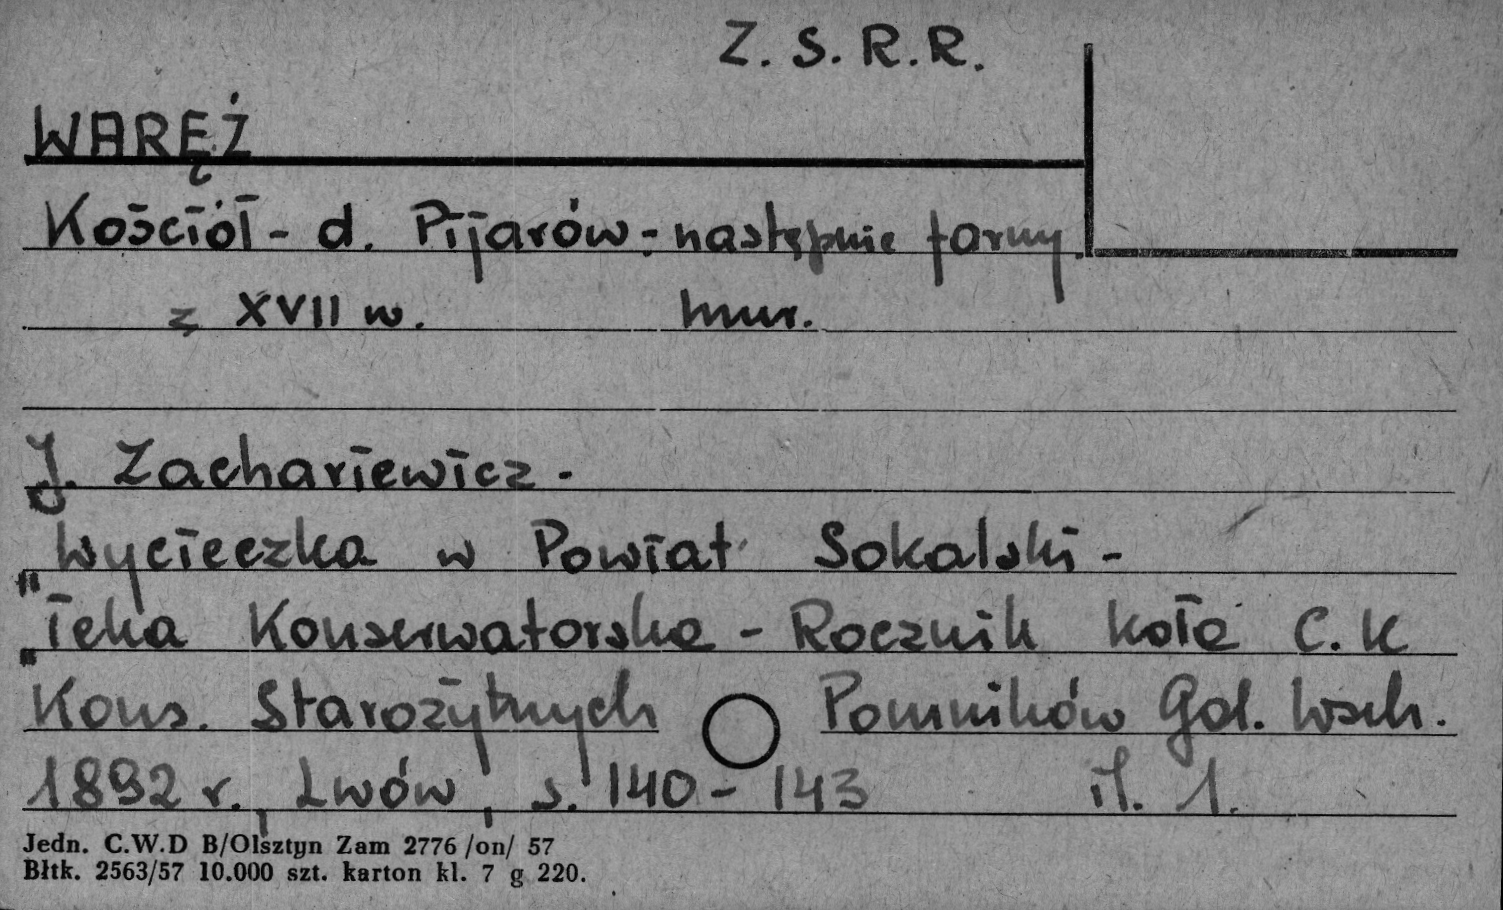 Z. S. R. R.
WARĘŻ
Kościół - d. Pijarów - następnie farny.
z XVII w. mur.
J. Zachariewicz -
Wycieczka w Powiat Sokalski -
"Teka Konserwatorska - Rocznik koła C. K
Kons. Starożytnych Pomników Gal. Wsch.
1892 r., Lwów, s. 140 - 143 il. 1.
Jedn. C.W.D B/Olsztyn Zam 2776 /on/ 57
Błtk. 2563/57 10.000 szt. karton kl. 7 g 220.